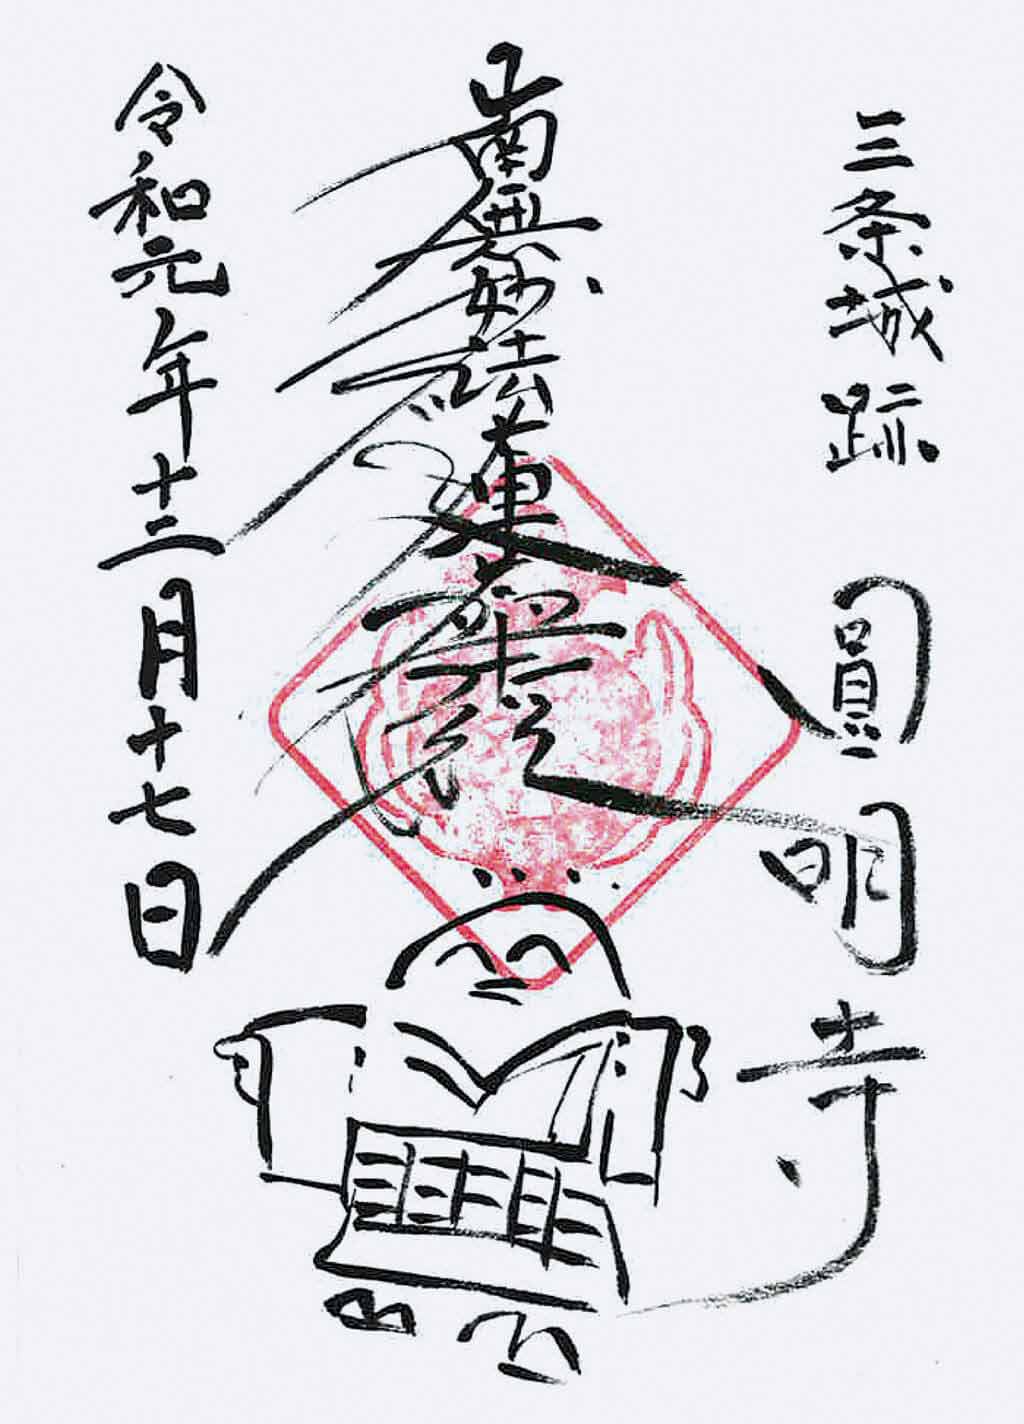 三条城跡
圓明寺
南無妙法蓮華経
令和元年十二月十七日